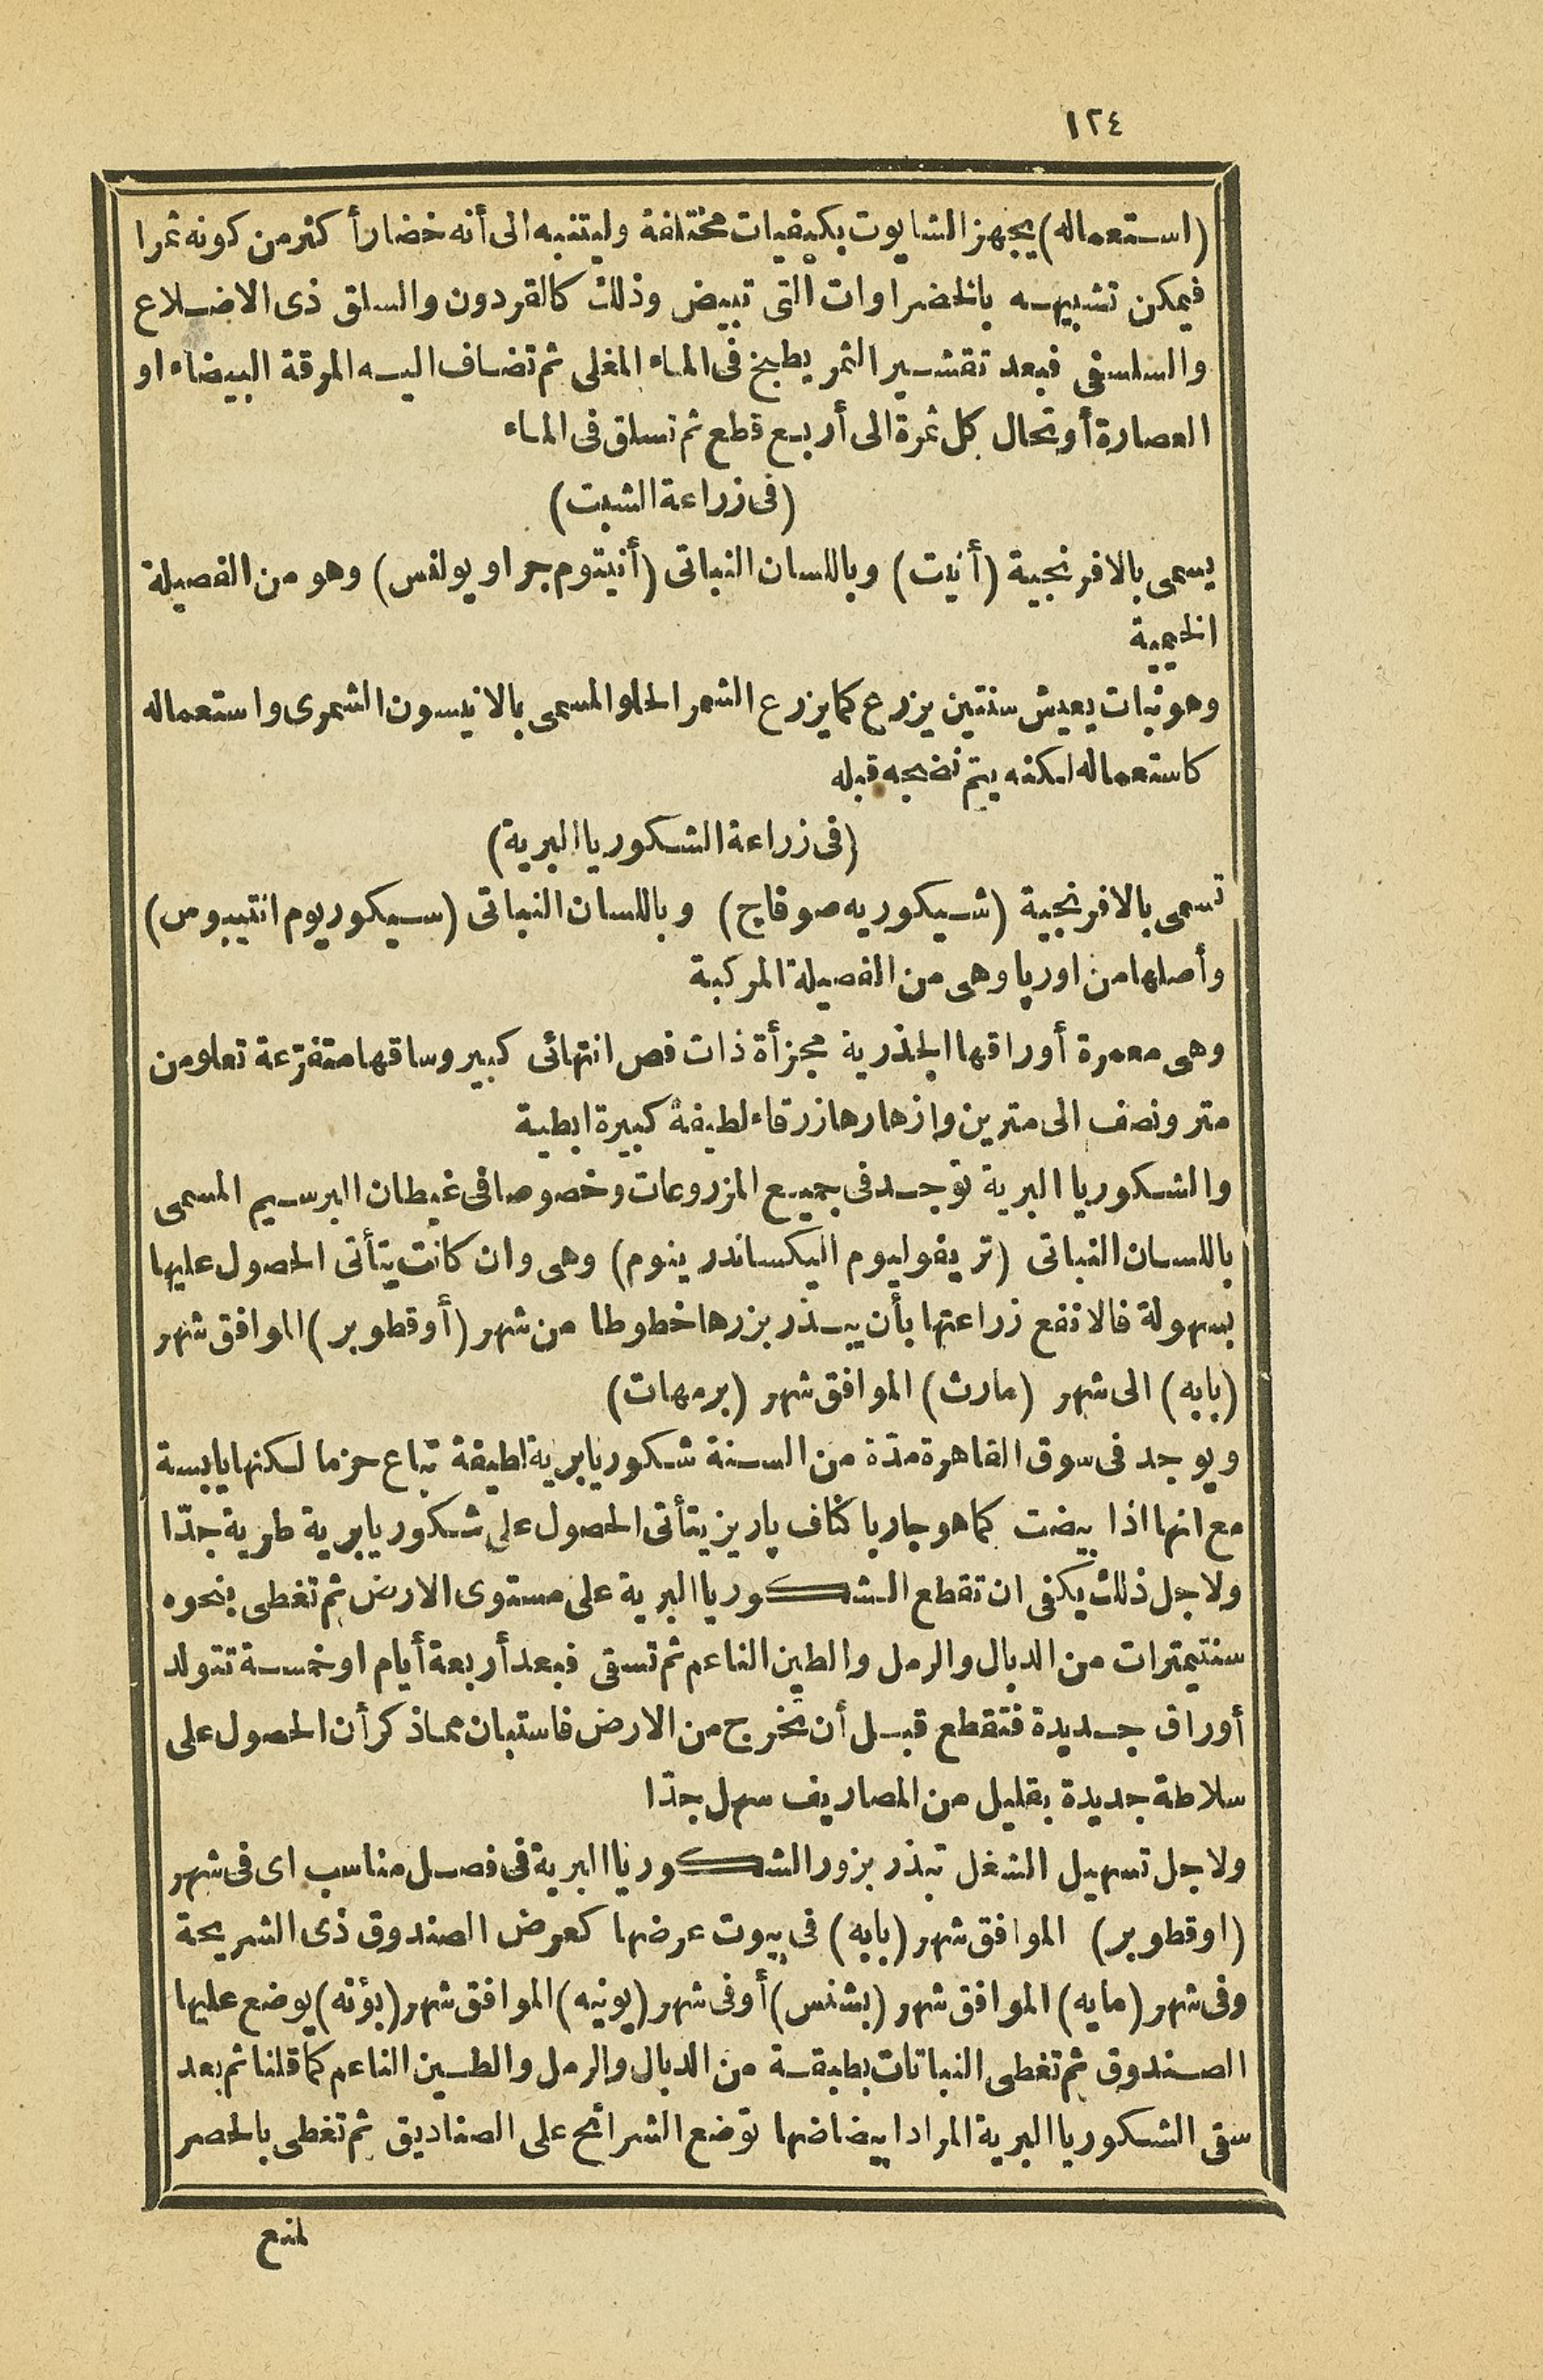 ١٢٤
(استعماله) يجهز الشايوت بكيفيات مختلفة وليتنبه الى أنه خضار أكثر من كونه ثمرا
فيمكن تشبيهه بالخضراوات التى تبيض وذلك كالقردون والسلق ذى الاضلاع
والسلسفى فبعد تقشير الثمر يطبخ فى الماء المغلى ثم تضاف اليه المرقة البيضاء او
العصارة أو تحال كل ثمرة الى أربع قطع ثم تسلق فى الماء
(فى زراعة الشبت)
يسمى بالافرنجية (أنيت) وباللسان النباتى (أنيتوم جراويولنس) وهو من الفصيلة
الخيمية
وهو نبات يعيش سنتين يزرع كما يزرع الشمر الحلو المسمى بالانيسون الشمرى واستعماله
كاستعماله لكنه يتم نضجه قبله
(فى زراعة الشكوريا البرية)
تسمى بالافرنجية (شيكوريه صوفاج) وباللسان النباتى (سيكوريوم انتيبوس)
وأصلها من اورپا وهى من الفصيلة المركبة
وهى معمرة أوراقها الجذرية مجزأة ذات فص انتهائى كبير وساقها متفرّعة تعلو من
متر ونصف الى مترين وازهارها زرقاء لطيفة كبيرة ابطية
والشكوريا البرية توجد فى جميع المزروعات وخصوصا فى غيطان البرسيم المسمى
باللسان النباتى (تريفوليوم اليكساندرينوم) وهى وان كانت يتأتى الحصول عليها
بسهولة فالانفع زراعتها بأن يبذر بزرها خطوطا من شهر (أوقطوبر) الموافق شهر
(بابه) الى شهر (مارث) الموافق شهر (برمهات)
ويوجد فى سوق القاهرة مدّة من السنة شكوريا برية لطيفة تباع حزما لكنها يابسة
مع انها اذا بيضت كما هو جار باكناف پاريز يتأتى الحصول على شكوريا برية طرية جدّا
ولاجل ذلك يكفى ان تقطع الشكوريا البرية على مستوى الارض ثم تغطى بنحو ٥
سنتيمترات من الدبال والرمل والطين الناعم ثم تسقى فبعد أربعة أيام او خمسة تتولد
أوراق جديدة فتقطع قبل أن تخرج من الارض فاستبان مما ذكر أن الحصول على
سلاطة جديدة بقليل من المصاريف سهل جدّا
ولاجل تسهيل الشغل تبذر بزور الشكوريا البرية فى فصل مناسب اى فى شهر
(اوقطوبر) الموافق شهر (بابه) فى بيوت عرضها كعرض الصندوق ذى الشريحة
وفى شهر (مايه) الموافق شهر (بشنس) أو فى شهر (يونيه) الموافق شهر (بؤنه) يوضع عليها
الصندوق ثم تغطى النباتات بطبقة من الدبال والرمل والطين الناعم كما قلنا ثم بعد
سقى الشكوريا البرية المراد ابيضاضها توضع الشرائح على الصناديق ثم تغطى بالحصر
لمنع